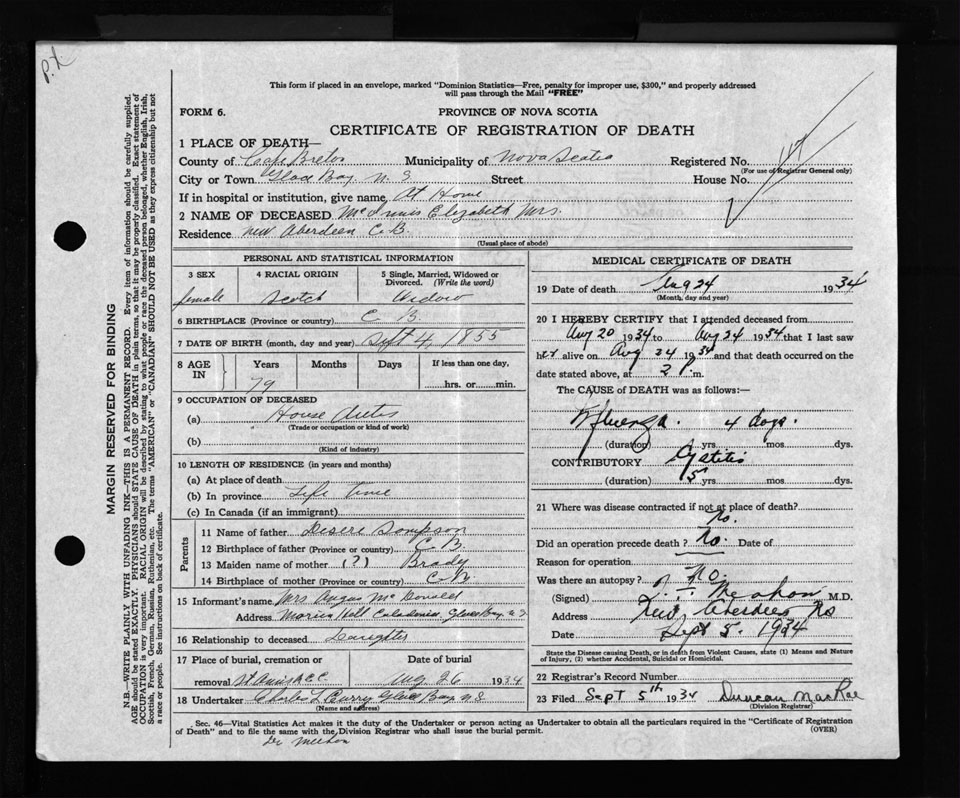 P.X
This form if placed in an envelope, marked "Dominion Statistics—Free, penalty for improper use, $300," and properly addressed
will pass through the Mail "FREE"
FORM 6.
PROVINCE OF NOVA SCOTIA
CERTIFICATE OF REGISTRATION OF DEATH
1 PLACE OF DEATH—
County of Cape Breton Municipality of Nova Scotia Registered No.
(For use of Registrar General only)
City or Town Glace Bay N. S Street House No.
If in hospital or institution, give name At Home
2 NAME OF DECEASED McInnis Elizabeth Mrs.
Residence New Aberdeen C.B.
(Usual place of abode)
PERSONAL AND STATISTICAL INFORMATION
3 SEX 4 RACIAL ORIGIN 5 Single, Married, Widowed or Divorced. (Write the word)
female Scotch Widow
6 BIRTHPLACE (Province or country) C B.
7 DATE OF BIRTH (month, day and year) Sept 4, 1855
8 AGE IN Years Months Days If less than one day,
79 hrs. or min.
9 OCCUPATION OF DECEASED
(a) House Duties
(Trade or occupation or kind of work)
(b)
(Kind of industry)
10 LENGTH OF RESIDENCE (in years and months)
(a) At place of death
(b) In province Life Time
(c) In Canada (if an immigrant)
Parents
11 Name of father Desere Sompson
12 Birthplace of father (Province or country) C B.
13 Maiden name of mother (?) Brady
14 Birthplace of mother (Province or country) C B.
15 Informant's name Mrs Angus McDonald
Address Caledonia, Glace Bay
16 Relationship to deceased Daughter
17 Place of burial, cremation or removal Date of burial
St Anns R.C.C. Aug 26 1934
18 Undertaker Charles L Curry Glace Bay N S.
(Name and address)
MEDICAL CERTIFICATE OF DEATH
19 Date of death Aug 24 1934
(Month, day and year)
20 I HEREBY CERTIFY that I attended deceased from
Aug 20 1934 to Aug 24 1934 that I last saw
her alive on Aug 24 1934 and that death occurred on the
date stated above, at 2 .m.
The CAUSE OF DEATH was as follows:—
Influenza. 4 days.
(duration) yrs. mos dys.
CONTRIBUTORY Cystitis
(duration) 5 yrs. mos. dys.
21 Where was disease contracted if not at place of death?
No.
Did an operation precede death? No. Date of
Reason for operation
Was there an autopsy? No.
(Signed) M.D.
Address New Aberdeen NS
Date Sept 5. 1934
State the Disease causing Death, or in death from Violent Causes, state (1) Means and Nature
of Injury, (2) whether Accidental, Suicidal or Homicidal.
22 Registrar's Record Number
23 Filed Sept 5th 1934 Duncan MacRae
(Division Registrar)
Sec. 46—Vital Statistics Act makes it the duty of the Undertaker or person acting as Undertaker to obtain all the particulars required in the "Certificate of Registration
of Death" and to file the same with the Division Registrar who shall issue the burial permit.
(OVER)
Dr Meehan
MARGIN RESERVED FOR BINDING
N.B.—WRITE PLAINLY WITH UNFADING INK—THIS IS A PERMANENT RECORD. Every item of information should be carefully supplied.
AGE should be stated EXACTLY. PHYSICIANS should STATE CAUSE OF DEATH in plain terms, so that it may be properly classified. Exact statement of
OCCUPATION is very important. RACIAL ORIGIN will be described by stating to what people or race the deceased person belonged, whether English, Irish,
Scottish, French, German, Russian, Ruthenian, etc. The terms "AMERICAN" or "CANADIAN" SHOULD NOT BE USED as they express citizenship but not
a race or people. See instructions on back of certificate.